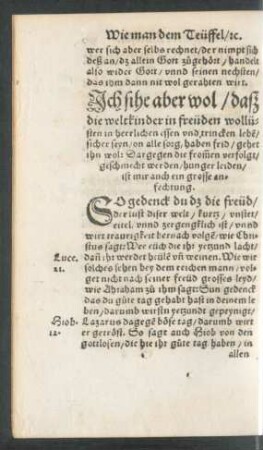 Wie man dem Teüffel/ꝛc.
wer sich aber selbs rechnet/der nimpt sich
deß an/dz allein Gott zůgehört/handelt
also wider Gott/vnnd seinen nechsten/
das ihm dann nit wol gerahten wirt.
Ich sihe aber wol/daß
die weltkinder in freüden wollü-
sten in herrlichen essen vnd trincken lebē/
sicher seyn/on alle sorg/haben frid/gehet
ihn wol: Dargegen die frommen verfolgt/
geschmecht werden/hunger leiden/
ist mir auch ein grosse an-
fechtung.
SO gedenck du dz die freüd/
der lust diser welt/kurtz/vnstet/
eitel/vnnd zergengklich ist/vnnd
wirt traurigkeit hernach volgē/wie Chri-
stus sagt: Wee eüch die ihr yetzund lacht/
Luce.
21.
dañ ihr werdet heülē vñ weinen. Wie wir
solches sehen bey dem reichen mann/vol-
get nicht nach seiner freüd grosses leyd/
wie Abraham zů ihm sagt: Sun gedenck
das du gůte tag gehabt hast in deinem le
ben/darumb wirstu yetzundt gepeynigt/
Hiob.
12.
Lazarus dagegē böse tag/darumb wirt
er getröst. So sagt auch Hiob von den
gottlosen/die hie ihr gůte tag haben/in
allen